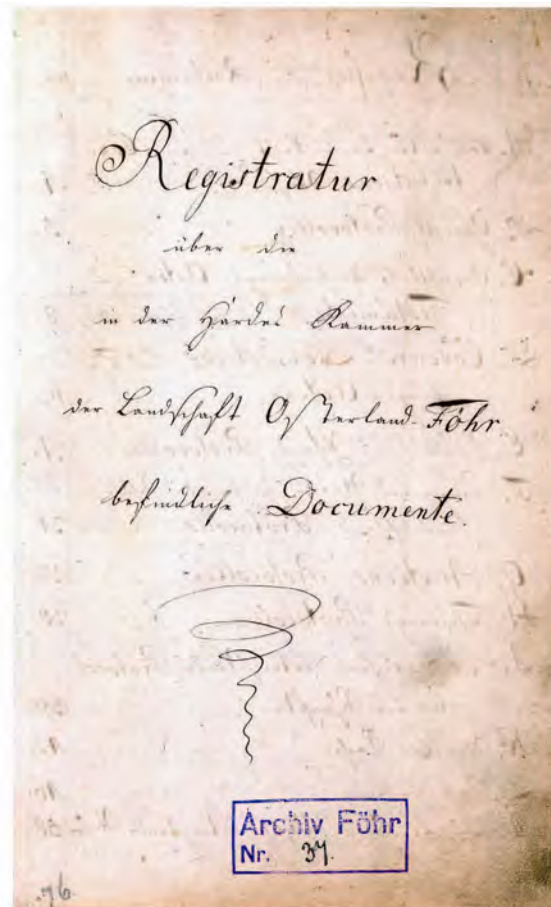 Registratur
über die
in der Hardes Kammer
der Landschaft Osterland-Föhr.
befindliche Documente.
Archiv Föhr
Nr. 37.
76